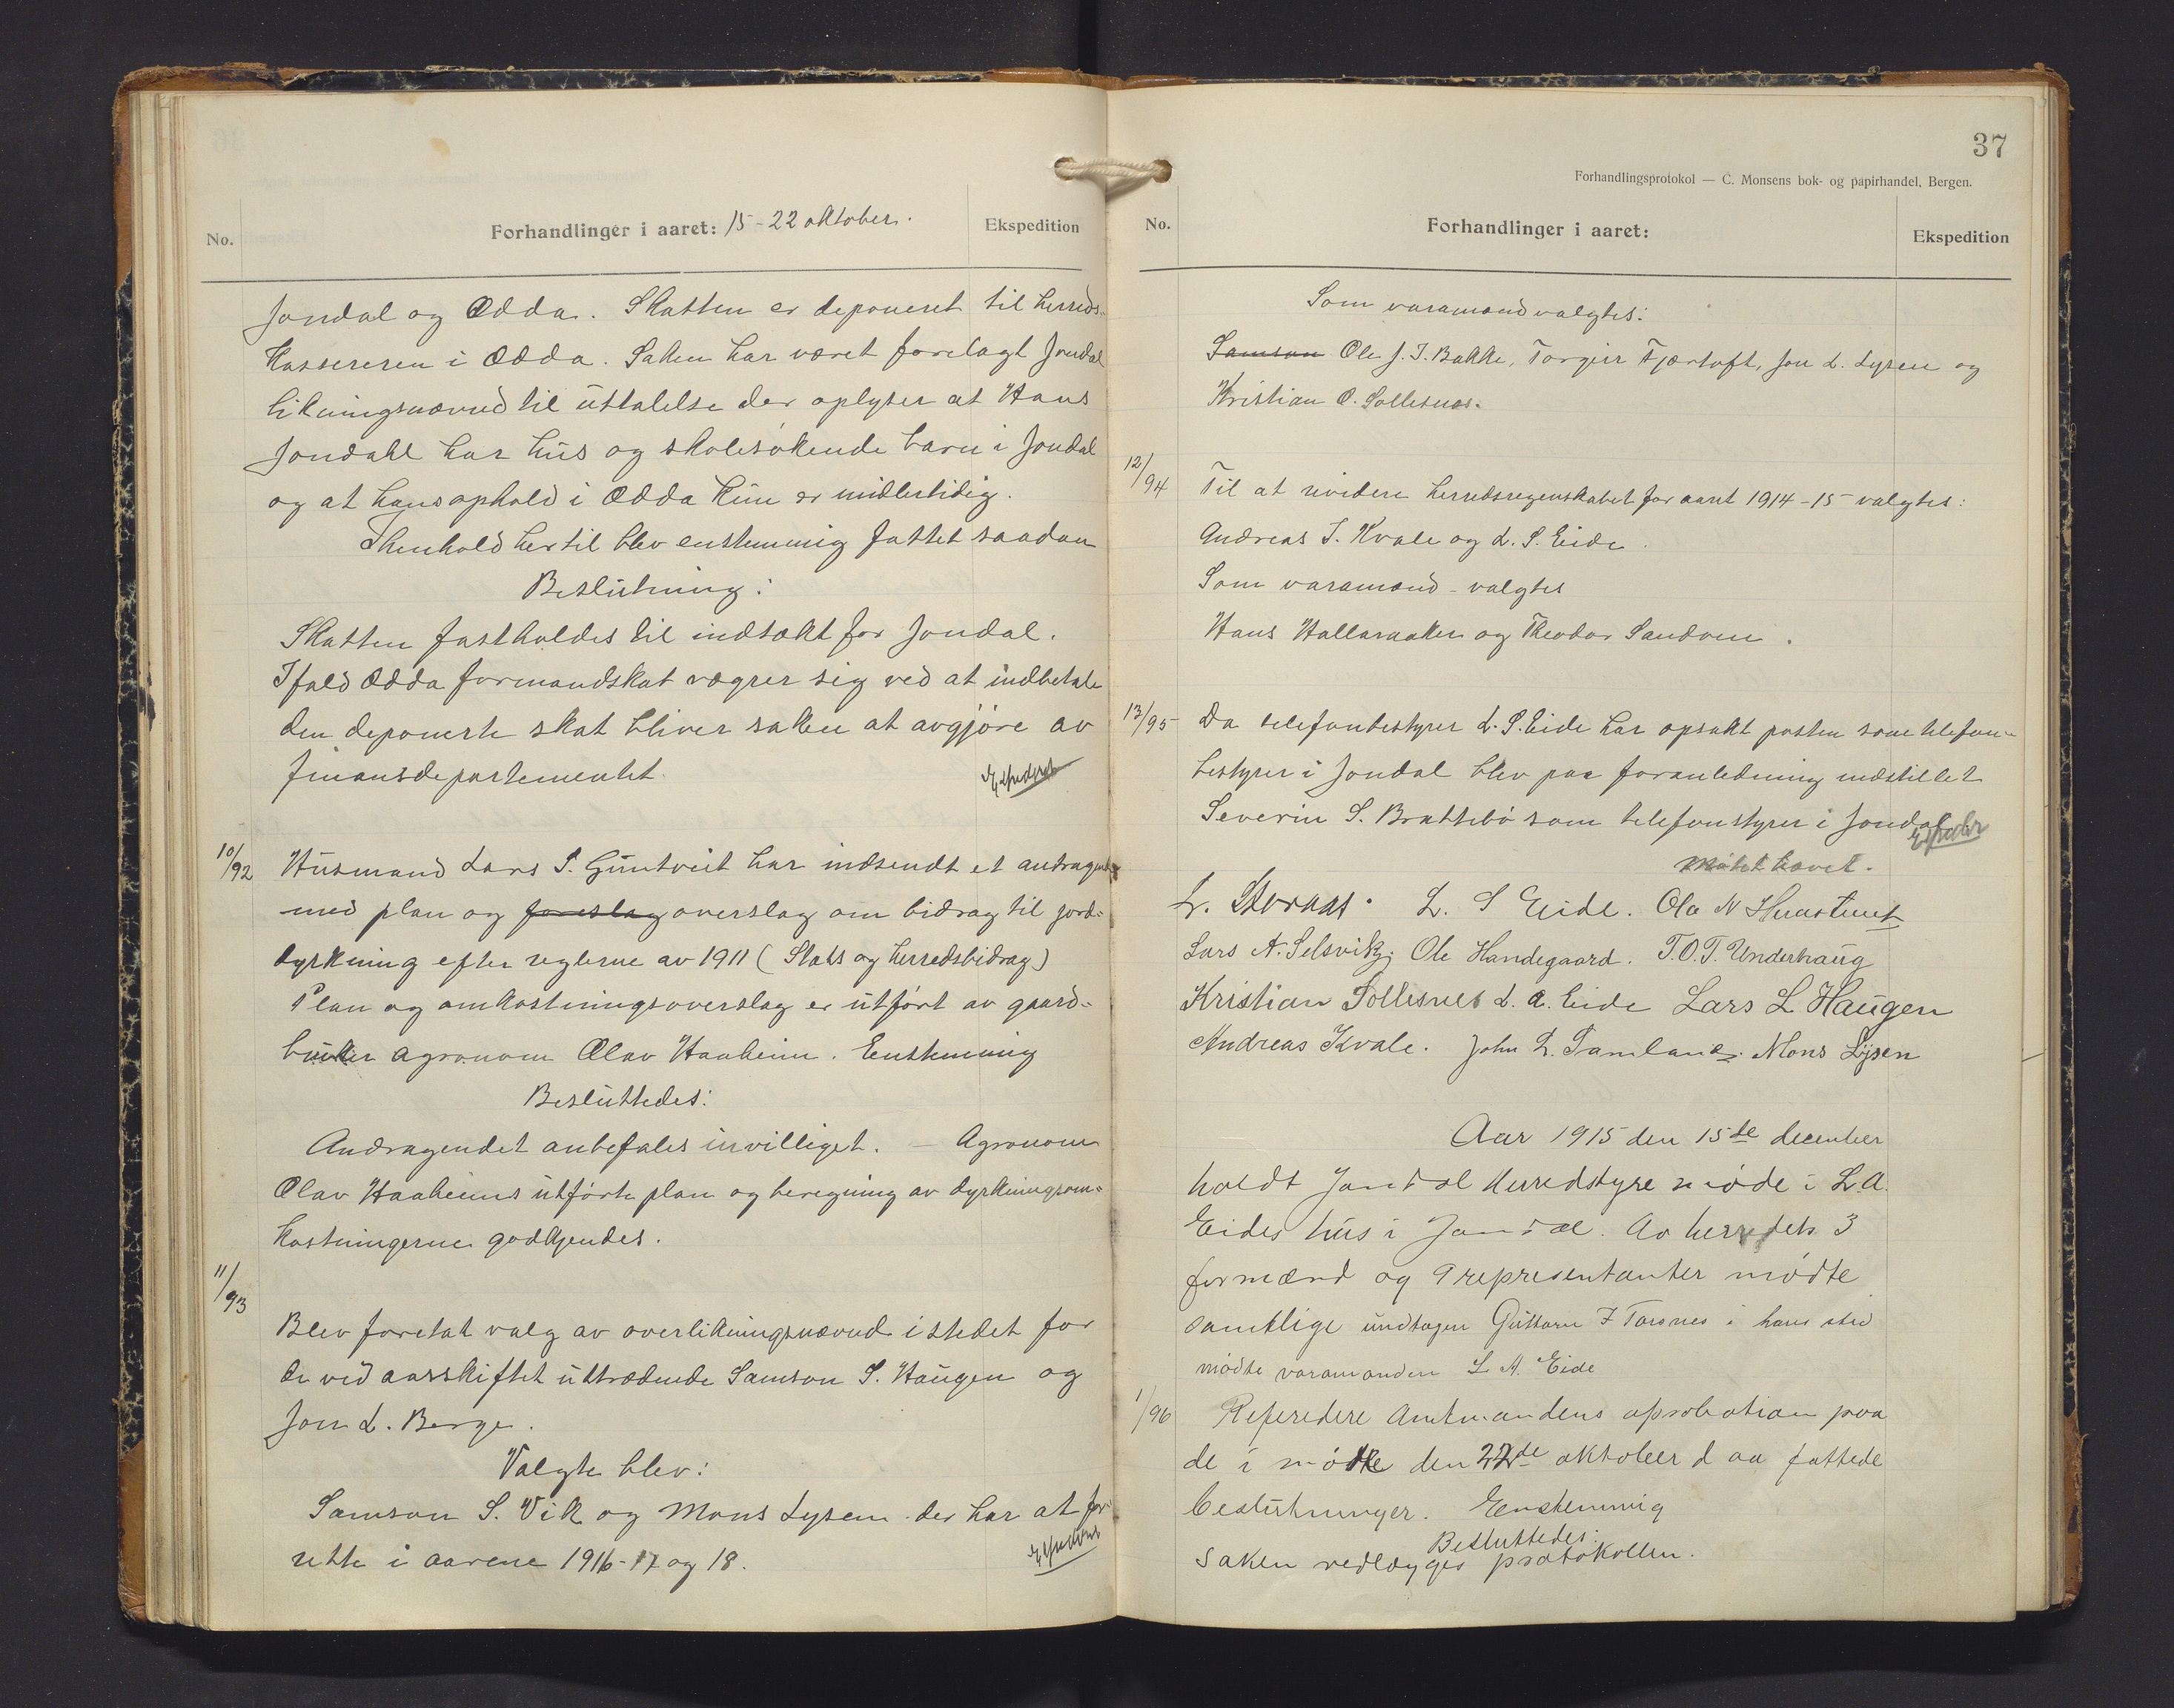 No.
Forhandlinger i aaret: 15 - 22 oktober.
Ekspedition
Jondal og Odda. Skatten er deponeret til herreds-
kassereren i Odda. Saken har været forelagt Jondal
likningsnævnd til uttalelse der oplyser at Hans
Jondahl har hus og skolesøkende barn i Jondal
og at hans ophold i Odda kun er midlertidig.
I henhold hertil blev enstemmig fattet saadan
Beslutning:
Skatten fastholdes til indtækt for Jondal.
Ifald Odda formandskab vægrer sig ved at indbetale
den deponerte skat bliver saken at avgjøre av
finansdepartementet.
10/92
Husmand Lars T. Guntveit har indsendt et andragende
med plan og foreslag overslag om bidrag til jord-
dyrkning efter reglerne av 1911 (Stats og herredsbidrag)
Plan og omkostningsoverslag er utført av gaard-
bruker agronom Olav Haaheim. Enstemmig
Besluttedes:
Andragendet anbefales invilliget. — Agronom
Olav Haaheims utførte plan og beregning av dyrkningsom-
kostningerne godkjendes.
11/93
Blev foretat valg av overlikningsnævnd istedet for
de ved aarsskiftet uttrædende Samson S. Haugen og
Jon L. Berge.
Valgte blev:
Samson S. Vik og Mons Lysen der har at for-
rette i aarene 1916-17 og 18.
37
Forhandlingsprotokol — C. Monsens bok- og papirhandel, Bergen.
No.
Forhandlinger i aaret:
Ekspedition
Som varamænd valgtes:
Samson Ole J. T. Bakke, Torgeir Fjærtoft, Jon L. Lysen og
Kristian O. Sollesnes.
12/94
Til at revidere herredsregenskabet for aaret 1914-15 valgtes:
Andreas J. Kvale og L. S. Eide.
Som varamænd - valgtes
Hans Hallaraaker og Theodor Sandven.
13/95
Da telefonbestyrer L. S. Eide har opsakt posten som telefon-
bestyrer i Jondal blev paa foranledning indstillet
Severin S. Brattebø som telefonstyrer i Jondal
Møtet hævet.
L. S Eide. Ola N
Lars A. Selsvik. Ole Handegaard. T. O. T. Underhaug
Kristian Sollesnes L. A. Eide Lars L Haugen
Andreas Kvale. John L. Samland. Mons Lysen
Aar 1915 den 15de december
holdt Jondal Herredstyre møde i L. A.
Eides hus i Jondal. Av herredets 3
formænd og 9 representanter mødte
samtlige undtagen Guttorm T Torsnes i hans sted
mødte varamanden L M. Eide
1/96
Referedere Amtmandens aprobation paa
de i møtte den 22de oktober d aa fattede
beslutninger. Eenstemmig
Besluttedes:
Saken vedlægges protokollen.